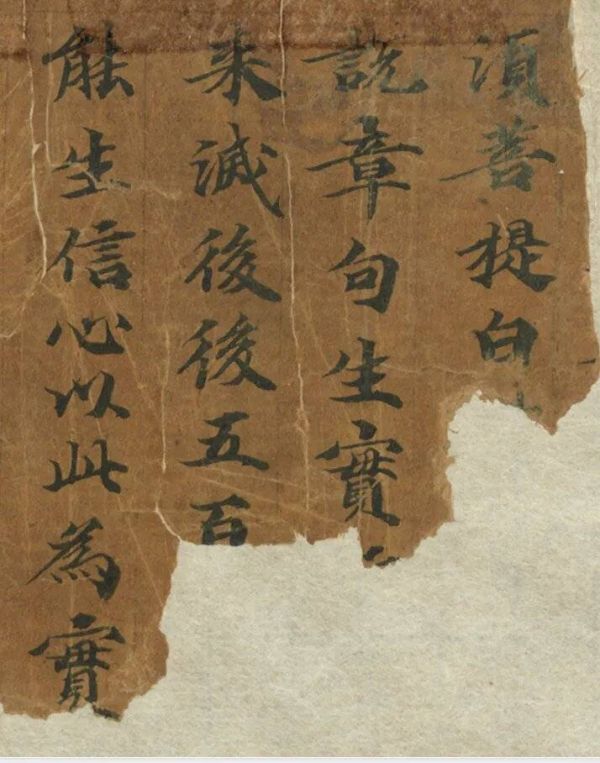 湏菩提白
説章句生實
来滅後後五百
能生信心以此為實